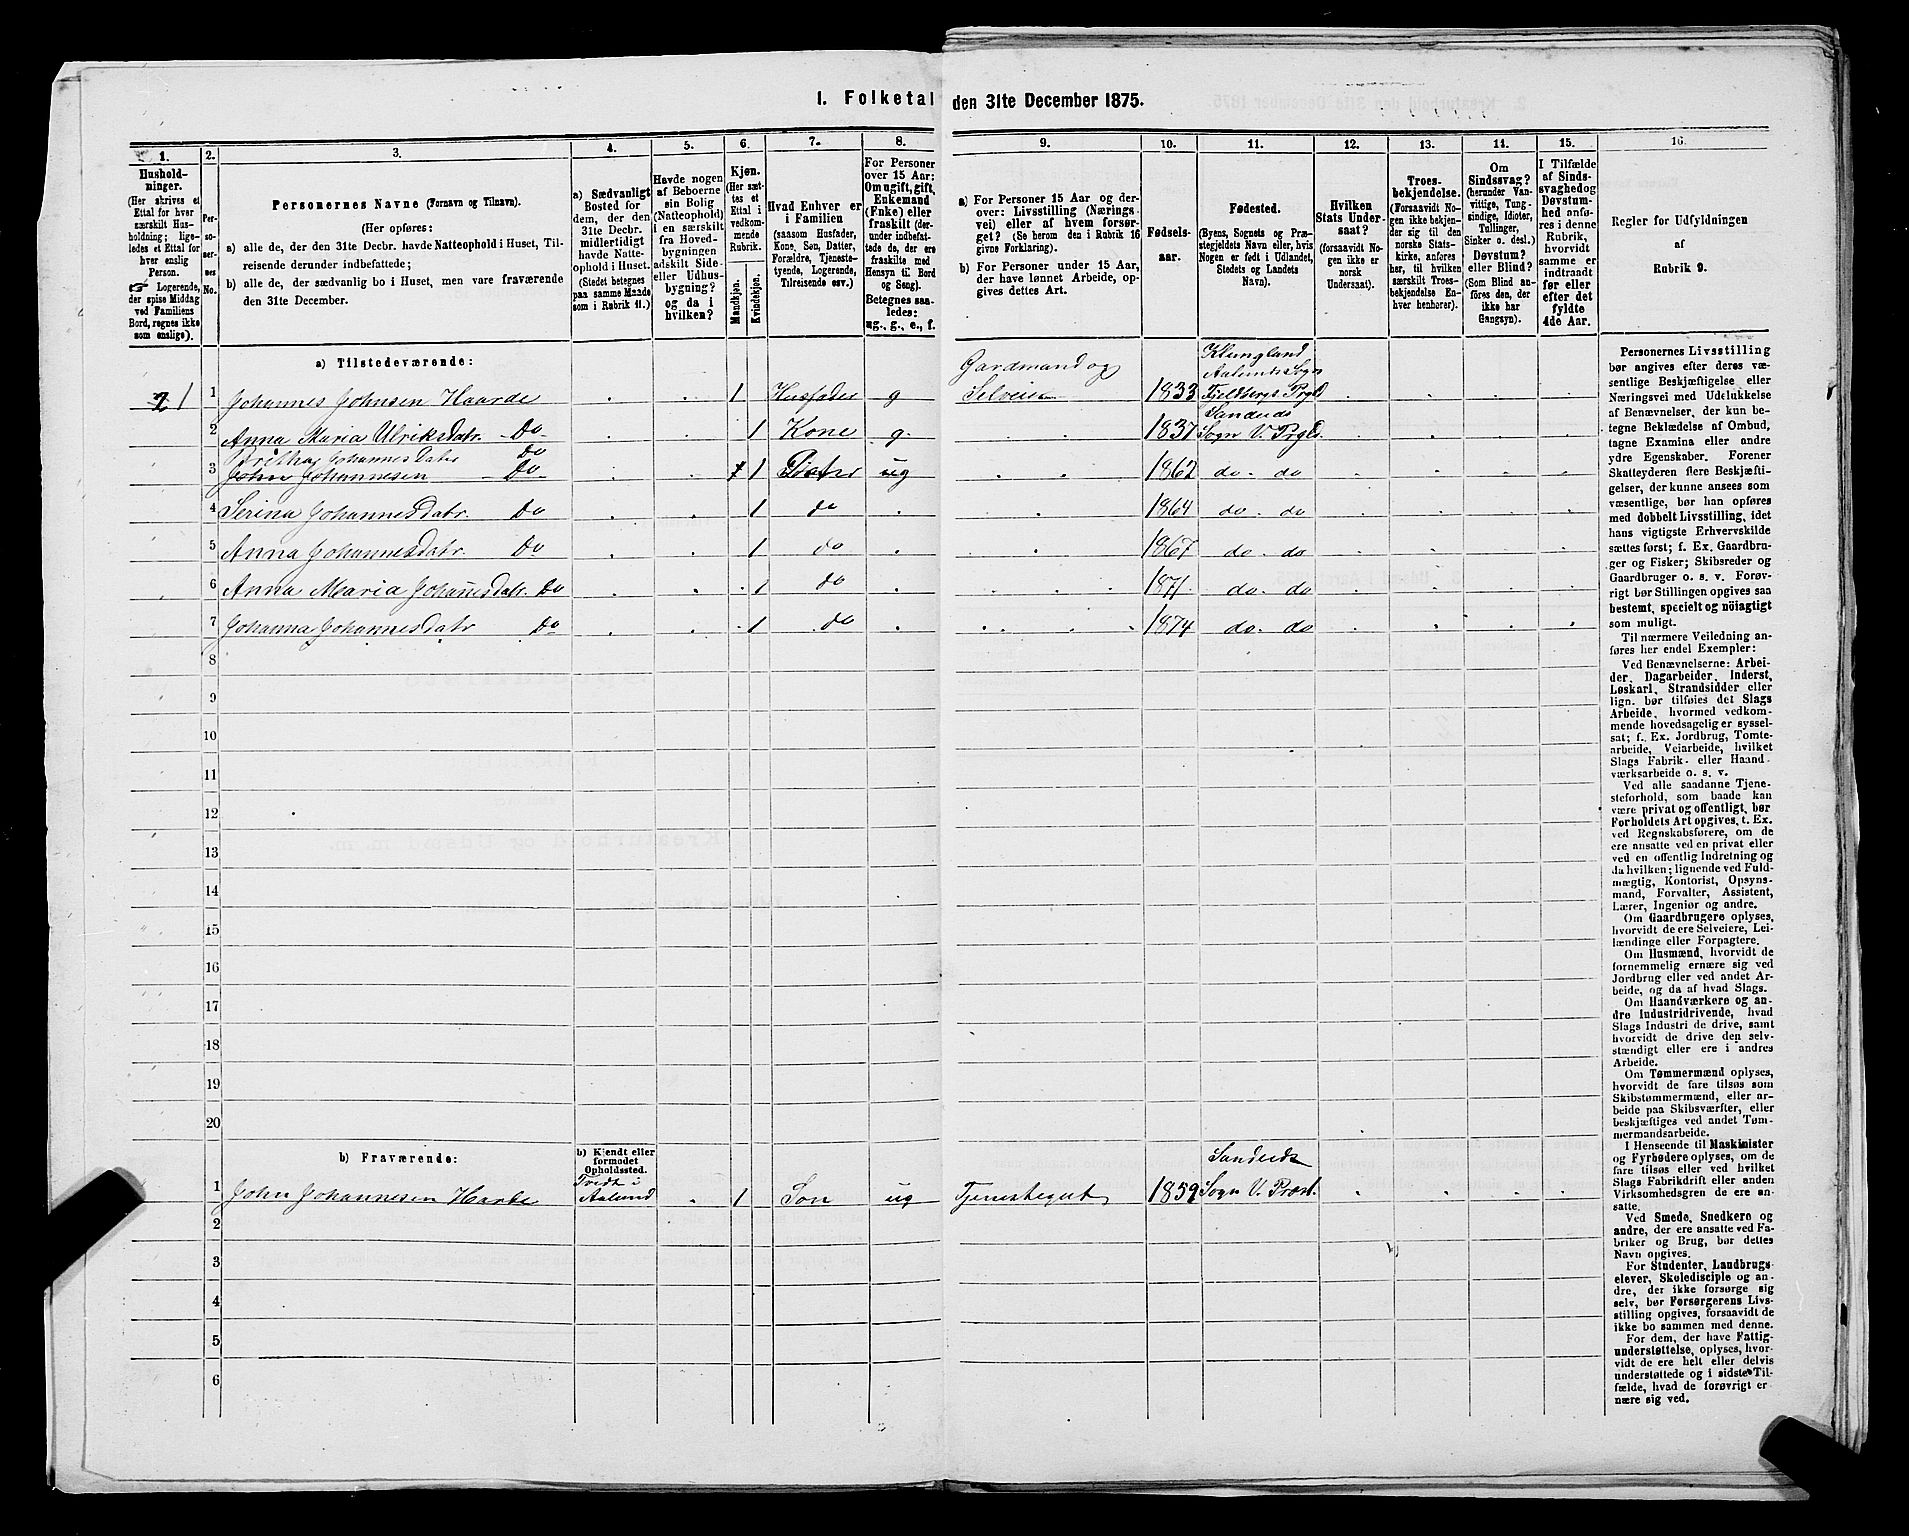 I. Folketal den 31te December 1875.
1.
2.
3.
4.
5.
6.
7.
8.
9.
10.
11.
12.
13.
14.
15.
16.
Hushold-
ninger.
(Her skrives et
Ettal for hver
særskilt Hus-
holdning; lige-
ledes et Ettal for
hver enslig
Person.
☞ Logerende,
der spise Middag
ved Familiens
Bord, regnes ikke
som enslige).
Per-
so-
ner-
nes
No.
Personernes Navne (Fornavn og Tilnavn).
(Her opføres:
a) alle de, der den 31te Decbr. havde Natteophold i Huset, Til-
reisende derunder indbefattede;
b) alle de, der sædvanlig bo i Huset, men vare fraværende
den 31te December.
a) Sædvanligt
Bosted for
dem, der den
31te Decbr.
midlertidigt
havde Natte-
ophold i Huset.
(Stedet betegnes
paa samme Maade
som i Rubrik 11.)
Havde nogen
af Beboerne
sin Bolig
(Natteophold)
i en særskilt
fra Hoved-
bygningen
adskilt Side-
eller Udhus-
bygning?
og da i
hvilken?
Kjøn.
(Her sæt-
tes et
Ettal i
vedkom-
mende
Rubrik.
Mandkjøn.
Kvindekjøn.
Hvad Enhver er
i Familien
(saasom Husfader,
Kone, Søn, Datter,
Forældre, Tjeneste-
tyende, Logerende,
Tilreisende osv.)
For Personer
over 15 Aar:
Om ugift, gift,
Enkemand
(Enke) eller
fraskilt (der-
under indbefat-
tede de, der ere
fraskilte med
Hensyn til Bord
og Seng).
Betegnes saa-
ledes:
ug., g., e., f.
a) For Personer 15 Aar og der-
over: Livsstilling (Nærings-
vei) eller af hvem forsør-
get? (Se herom den i Rubrik 16
givne Forklaring).
b) For Personer under 15 Aar,
der have lønnet Arbeide, op-
gives dettes Art.
Fødsels-
aar.
Fødested.
(Byens, Sognets og Præ-
stegjeldets Navn eller, hvis
Nogen er født i Udlandet,
Stedets og Landets
Navn).
Hvilken
Stats Under-
saat?
(forsaavidt No-
gen ikke er
norsk
Undersaat).
Troes-
bekjendelse.
(Forsaavidt No-
gen ikke bekjen-
der sig til den
norske Stats-
kirke, anføres
her, til hvilken
særskilt Troes-
bekjendelse En-
hver henhører).
Om
Sindssvag?
(herunder Van-
vittige, Tung-
sindige, Idioter,
Tullinger,
Sinker o. desl.)
Døvstum?
eller Blind?
(Som Blind an-
føres den, der
ikke har
Gangsyn).
I Tilfælde
af Sinds-
svaghed og
Døvstum-
hed anfø-
res i denne
Rubrik,
hvorvidt
samme er
indtraadt
før eller
efter det
fyldte
4de Aar.
Regler for Udfyldningen
af
Rubrik 9.
a) Tilstedeværende:
1 1 Johannes Johnsen Haarde . . 1 Husfader g Gardmand og Selveier 1833 Klungland Aalunds Sogn Fjeldbergs Prgld
2 Anna Maria Ulriksdatr. Do 1 Kone g. 1837 Sandeids Sogn V. Prgld.
3 Britha Johannesdater Do
John Johannesen Do 1 Dater ug 1862 do. do
4 Serina Johannesdatr. Do 1 do 1864 do. do
5 Anna Johannesdatr. Do 1 do 1867 do. do
6 Anna Maria Johanesdatr. Do 1 do 1871. do. do
7 Johanna Johannesdatr Do 1 do 1874 do. do
8
9
10
11
12
13
14
15
16
17
18
19
20
b) Fraværende:
b) Kjendt eller
formodet
Opholdssted.
1 John Johannesen Harde Tvedt i Aalund 1 Søn ug Tjenestegut 1859 Sandeids Sogn V. Præst.
2
3
4
5
6
Personernes Livsstilling
bør angives efter deres væ-
sentlige Beskjæftigelse eller
Næringsvei med Udelukkelse
af Benævnelser, der kun be-
tegne Beklædelse af Ombud,
tagne Examina eller andre
ydre Egenskaber. Forener
Skatteyderen flere Beskjæfti-
gelser, der kunne ansees som
væsentlige, bør han opføres
med dobbelt Livsstilling, idet
hans vigtigste Erhvervskilde
sættes først; f. Ex. Gaardbru-
ger og Fisker; Skibsreder og
Gaardbruger o. s. v. Forøv-
rigt bør Stillingen opgives saa
bestemt, specielt og nöiagtigt
som muligt.
Til nærmere Veiledning an-
føres her endel Exempler:
Ved Benævnelserne: Arbei-
der, Dagarbeider, Inderst,
Løskarl, Strandsidder eller
lign. bør tilføies det Slags
Arbeide, hvormed vedkom-
mende hovedsagelig er syssel-
sat; f. Ex. Jordbrug, Tomte-
arbeide, Veiarbeide, hvilket
Slags Fabrik- eller Haand-
værksarbeide o. s. v.
Ved alle saadanne Tjene-
steforhold, som baade kan
være privat og offentligt, bør
Forholdets Art opgives, t. Ex.
ved Regnskabsførere, om de
ere ansatte ved en privat eller
ved en offentlig Indretning og
da hvilken; lignende ved Fuld-
mægtig, Kontorist, Opsyns-
mand, Forvalter, Assistent,
Lærer, Ingeniør og andre.
Om Gaardbrugere oplyses,
hvorvidt de ere Selveiere, Lei-
lændinge eller Forpagtere.
Om Husmænd, hvorvidt de
fornemmelig ernære sig ved
Jordbrug eller ved andet Ar-
beide, og da af hvad Slags.
Om Haandværkere og an-
dre Industridrivende, hvad
Slags Industri de drive, samt
hvorvidt de drive den selv-
stændigt eller ere i andres
Arbeide.
Om Tømmermænd oplyses,
hvorvidt de fare tilsøs som
Skibstømmermænd, eller ar-
beide paa Skibsværfter, eller
beskjæftiges ved andet Tøm-
mermandsarbeide.
I Henseende til Maskinister
og Fyrbødere oplyses, om de
fare tilsøs eller ved hvilket
Slags Fabrikdrift eller anden
Virksomhedsgren de ere an-
satte.
Ved Smede, Snedkere og
andre, der ere ansatte ved Fa-
briker og Brug, bør dettes
Navn opgives.
For Studenter, Landbrugs-
elever, Skoledisciple og an-
dre, der ikke forsørge sig
selv, bør Forsørgerens Livs-
stilling opgives, forsaavidt de
ikke bo sammen med denne.
For dem, der have Fattig-
understøttelse, oplyses, hvor-
vidt de ere helt eller delvis
understøttede og i sidste Til-
fælde, hvad de forøvrigt er-
nære sig ved.